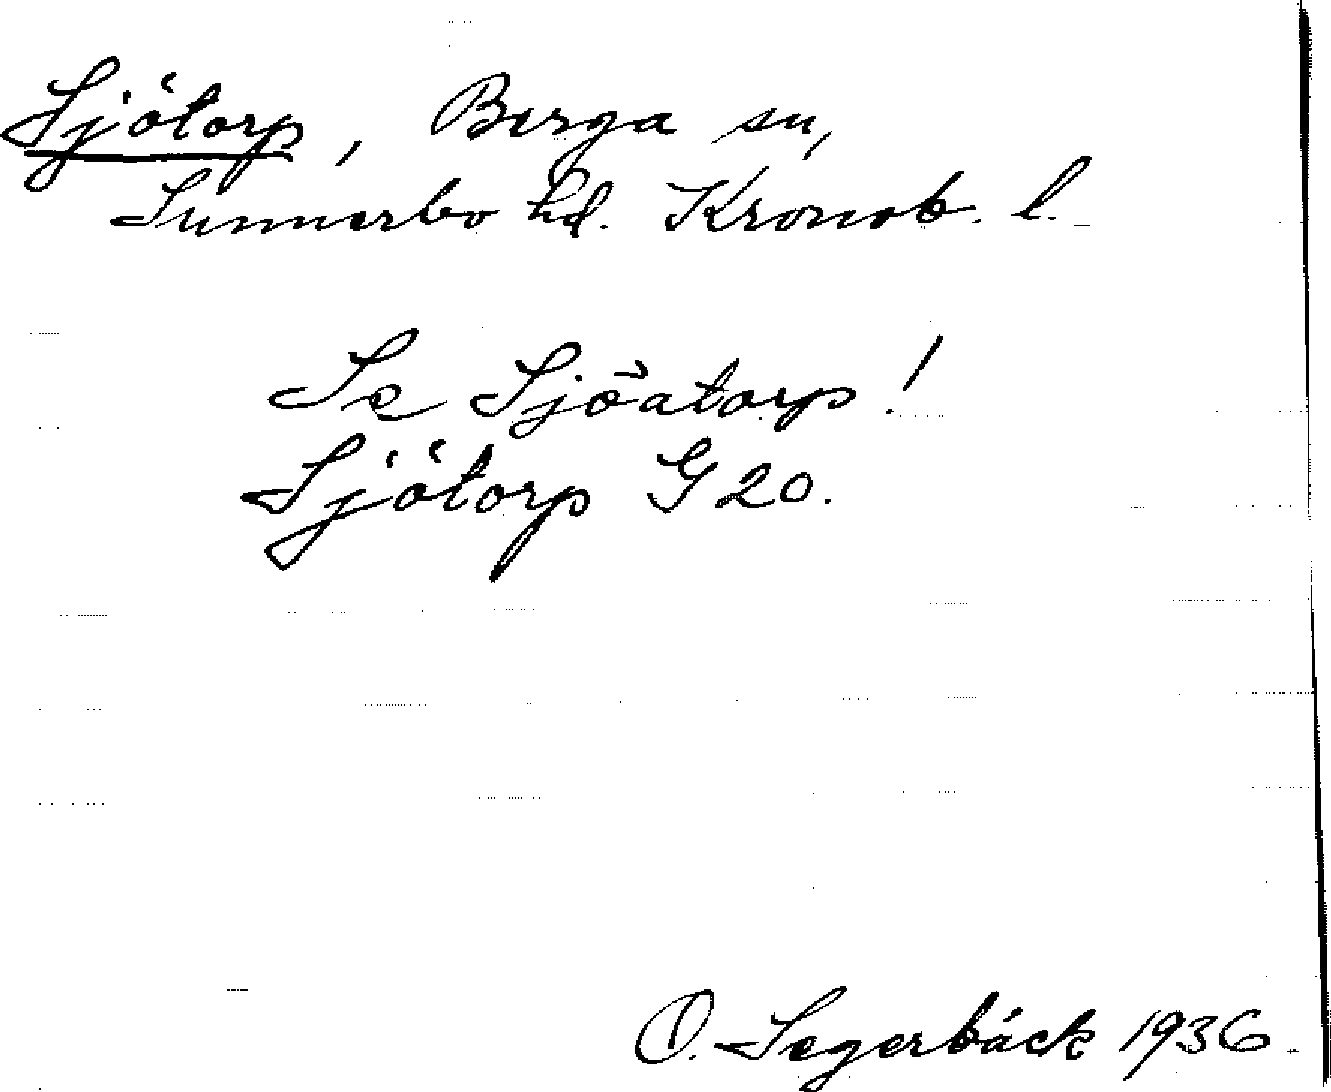 Sjötorp, Berga sn,
Sunnerbo hd. Kronob. l.
Se Sjöatorp!
Sjötorp G 20.
O. Segerbäck 1936